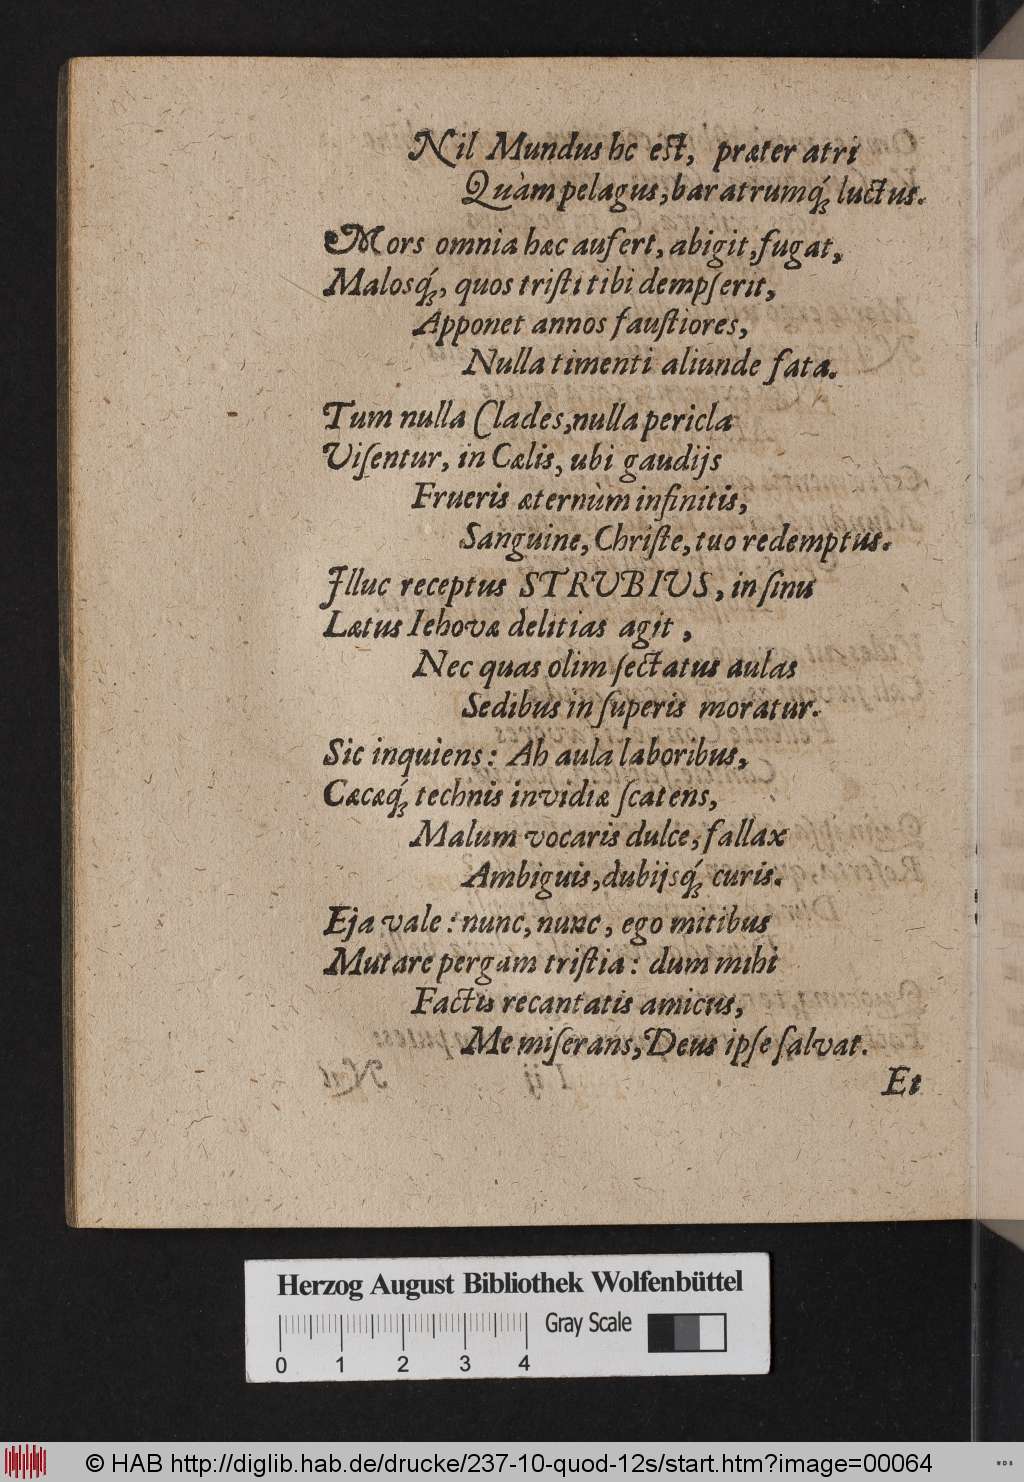 Nil Mundus hc est, præter atri
Quàm pelagus, baratrumq́; luctus.
Mors omnia hæc aufert, abigit, fugat,
Malosq́;, quos tristi tibi dempſerit,
Apponet annos fauſtiores,
Nulla timenti aliunde fata.
Tum nulla Clades, nulla pericla
Viſentur, in Cælis, ubi gaudijs
Frueris æternùm infinitis,
Sanguine, Chriſte, tuo redemptus.
Illuc receptus STRUBIUS, in ſinu
Lætus Iehovæ delitias agit,
Nec quas olim ſectatus aulas
Sedibus in ſuperis moratur.
Sic inquiens: Ah aula laboribus,
Cæcæq́; technis invidiæ ſcatens,
Malum vocaris dulce, fallax
Ambiguis, dubijsq́; curis.
Eja vale: nunc, nunc, ego mitibus
Mutare pergam triſtia: dum mihi
Factis recantatis amicus,
Me miſerans, Deus ipſe ſalvat.
Et
Herzog August Bibliothek Wolfenbüttel
0 1 2 3 4
Gray Scale
© HAB http://diglib.hab.de/drucke/237-10-quod-12s/start.htm?image=00064